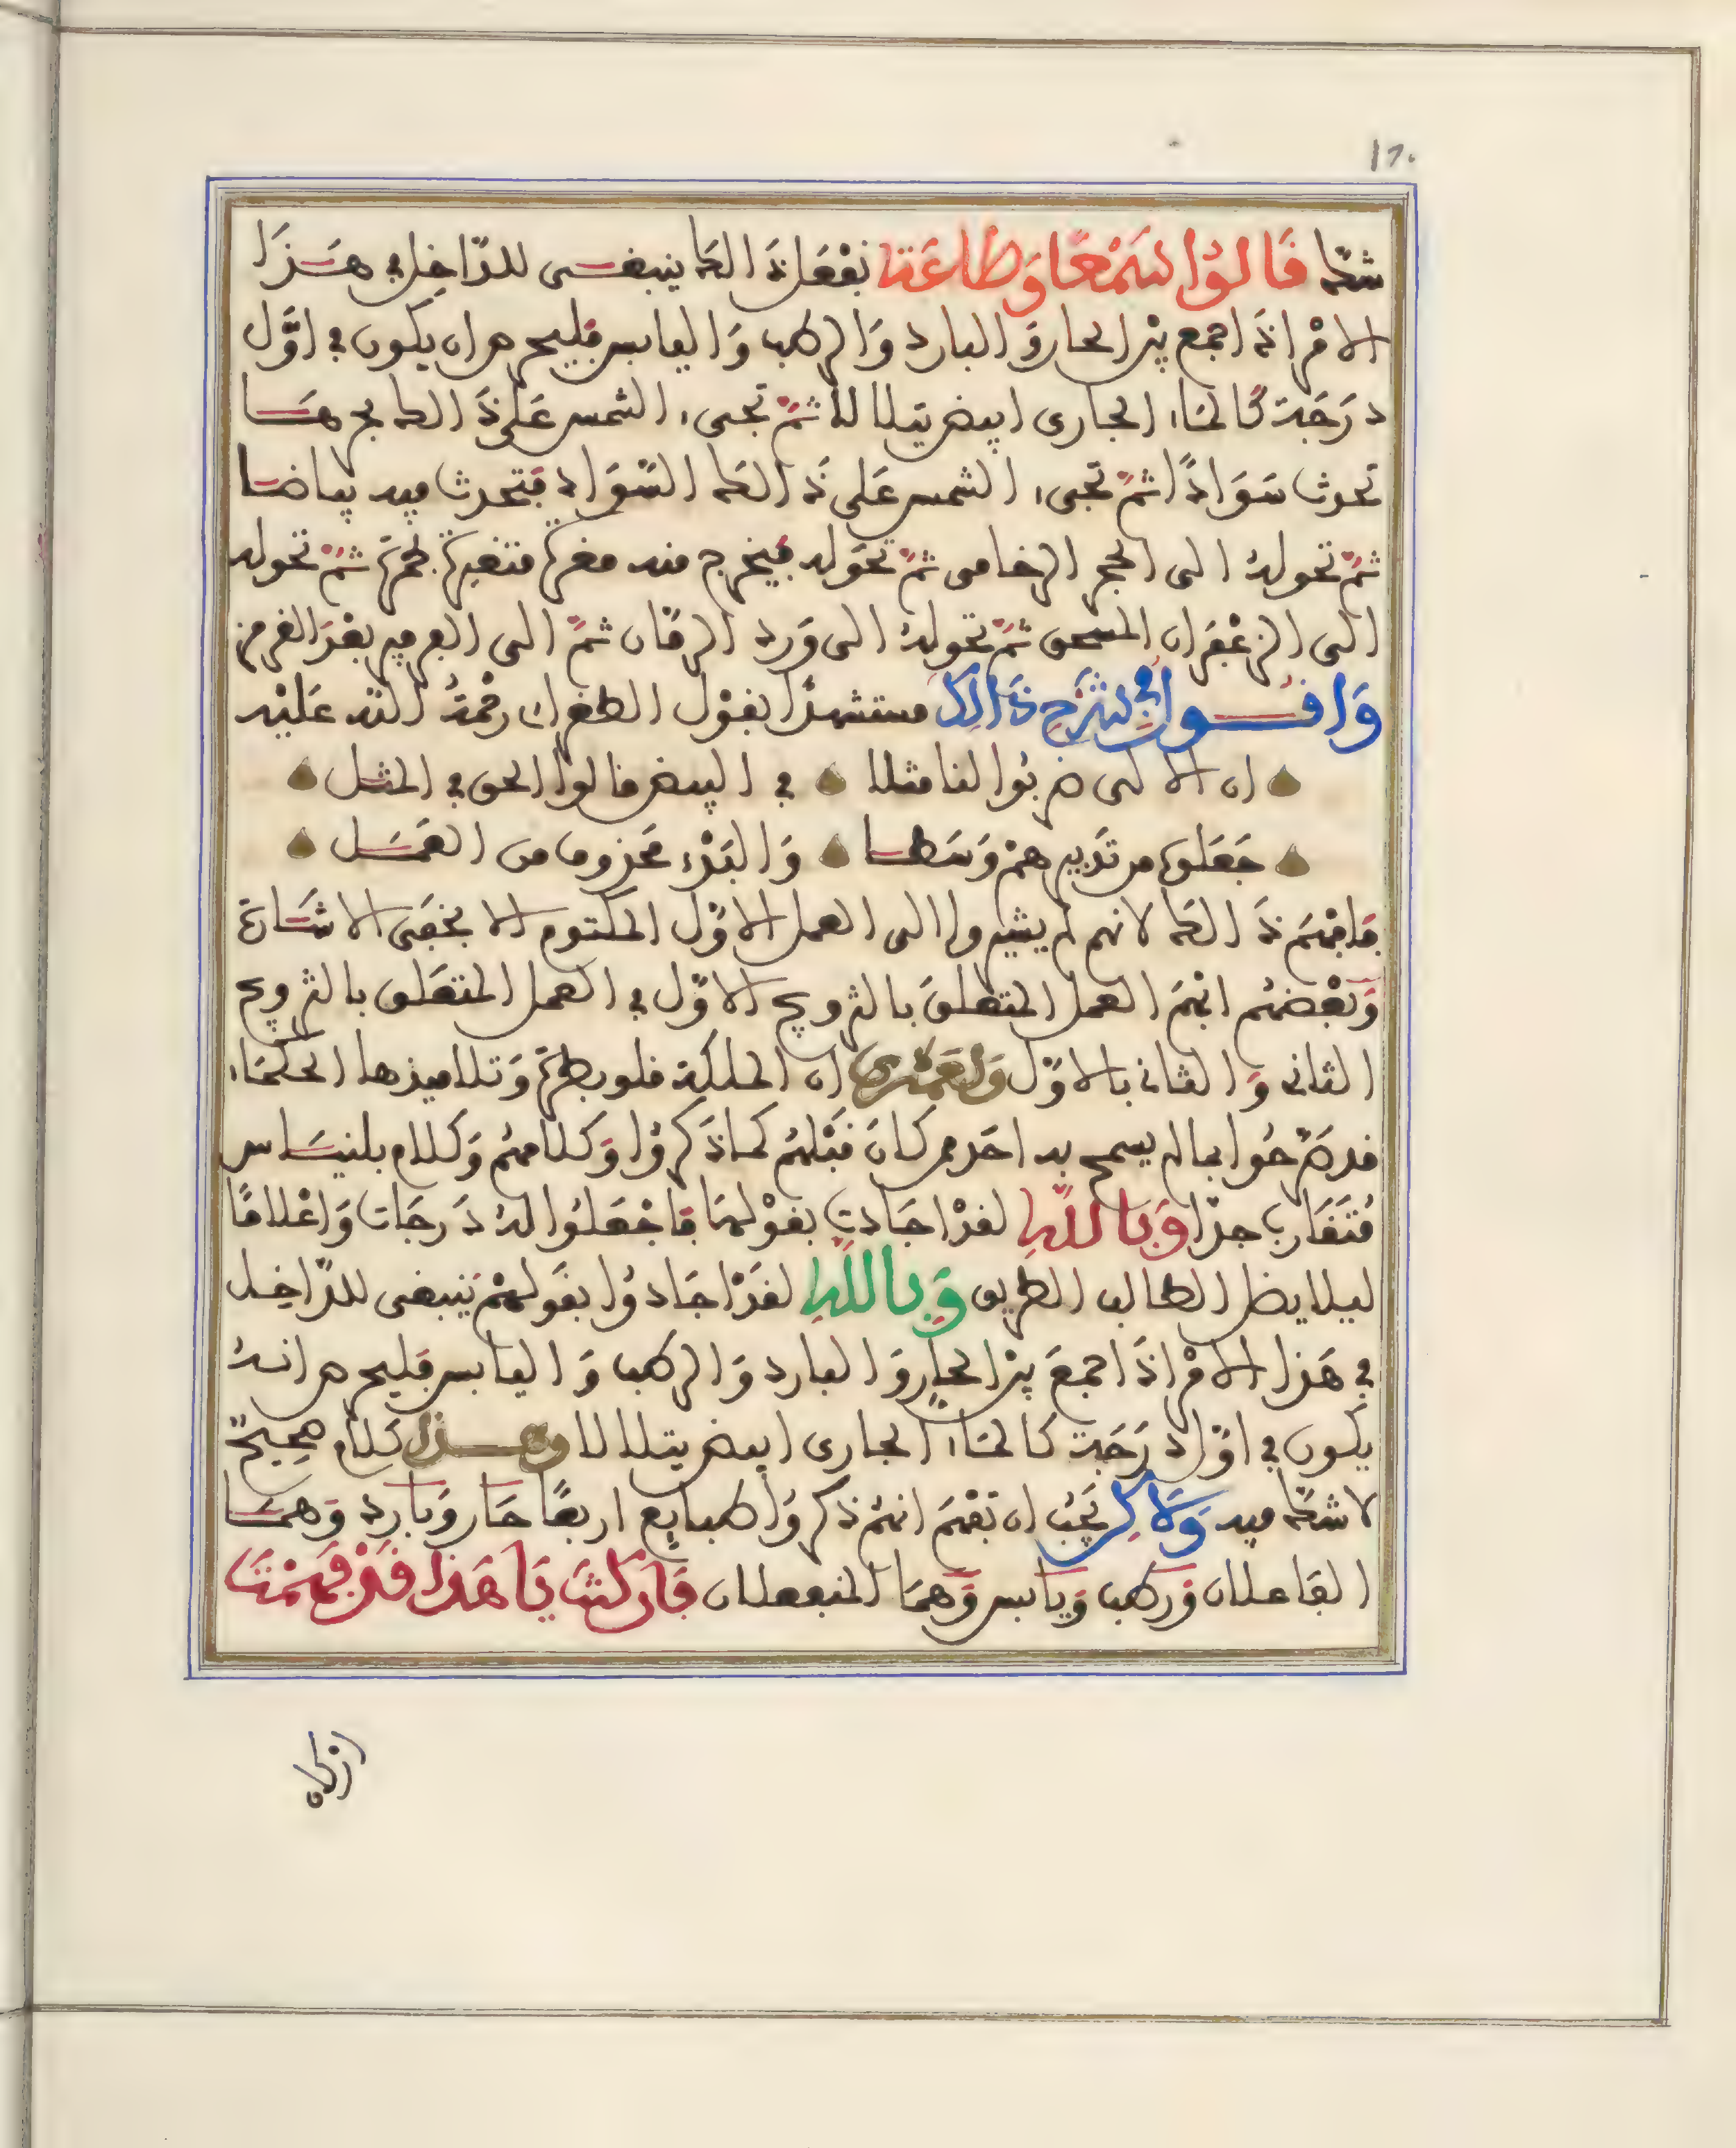 ١٦٠
شك قالوا سمعا وطاعة نفعل ذالك ينبغي للداخل في هذا
الامر اذا جمع بين الحار والبارد والرطب واليابس فليحرص ان يكون في اول
درجة كالماء الجاري ابيض يتلالا ثم تجيء الشمس على ذالك
تحدث سوادا ثم تجيء الشمس على ذالك السواد فتحدث فيه بياضا
ثم تحوله الى الحجر الرخامي ثم تحوله فيخرج منه ثم تحوله
الى الزعفران المسحق ثم تحوله الى ورد الرمان ثم الى الفرفير بعد القرمز
واقول في شرح ذالك مستشهدا بقول الطغراي رحمة الله عليه
ان الالى ضربوا لنا مثلا في البيض قالوا الحق في المثل
جعلوا من تدبيرهم وسطا والبدء محزوما من العمل
فافهم ذالك لانهم لم يشيروا الى العمل الاول المكتوم الا بخفي الاشارة
وبعضهم ابهم العمل المتعلق بالتزويج الاول في العمل المتعلق بالتزويج
الثاني والثاني بالاول ولعمري ان الملكة قلوبطرة وتلاميذها الحكماء
قد صرحوا بما لم يسمح به احد ممن كان قبلهم كما ذكروا وكلامهم وكلام بلنياس
متقارب جدا وبالله لقد اجادت بقولها فاجعلوا له درجات واعلاما
ليلا يضل الطالب الطريق وبالله لقد اجادوا بقولهم ينبغي للداخل
في هذا الامر اذا جمع بين الحار والبارد والرطب واليابس فليحرص انه
يكون في اول درجة كالماء الجاري ابيض يتلالا وهذا كلام صحيح
لا شك فيه ولاكن يجب ان تفهم انهم ذكروا طبايع اربعا حار وبارد وهما
الفاعلان ورطب ويابس وهما المنفعلان فان كنت يا هذا قد فهمت